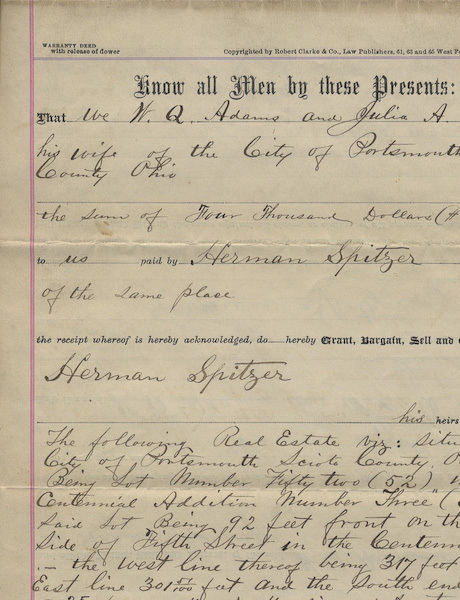 WARRANTY DEED
with release of dower
Copyrighted by Robert Clarke & Co., Law Publishers, 61, 63 and 65 West Fo
Know all Men by these Presents:
That We W. Q. Adams and Julia A
his wife of the City of Portsmouth
County Ohio
the sum of Four Thousand Dollars (#
to us paid by Herman Spitzer
of the same place
the receipt whereof is hereby acknowledged, do hereby Grant, Bargain, Sell and
Herman Spitzer
his heirs
The following Real Estate viz: situ
City of Portsmouth Scioto County, O
Being Lot Number Fifty two (52)
Centennial Addition Number Three" (
said Lot Being 92 feet front on th
side of Fifth Street in the Centenn
the west line thereof being 317 feet
East line 301 feet and the south end